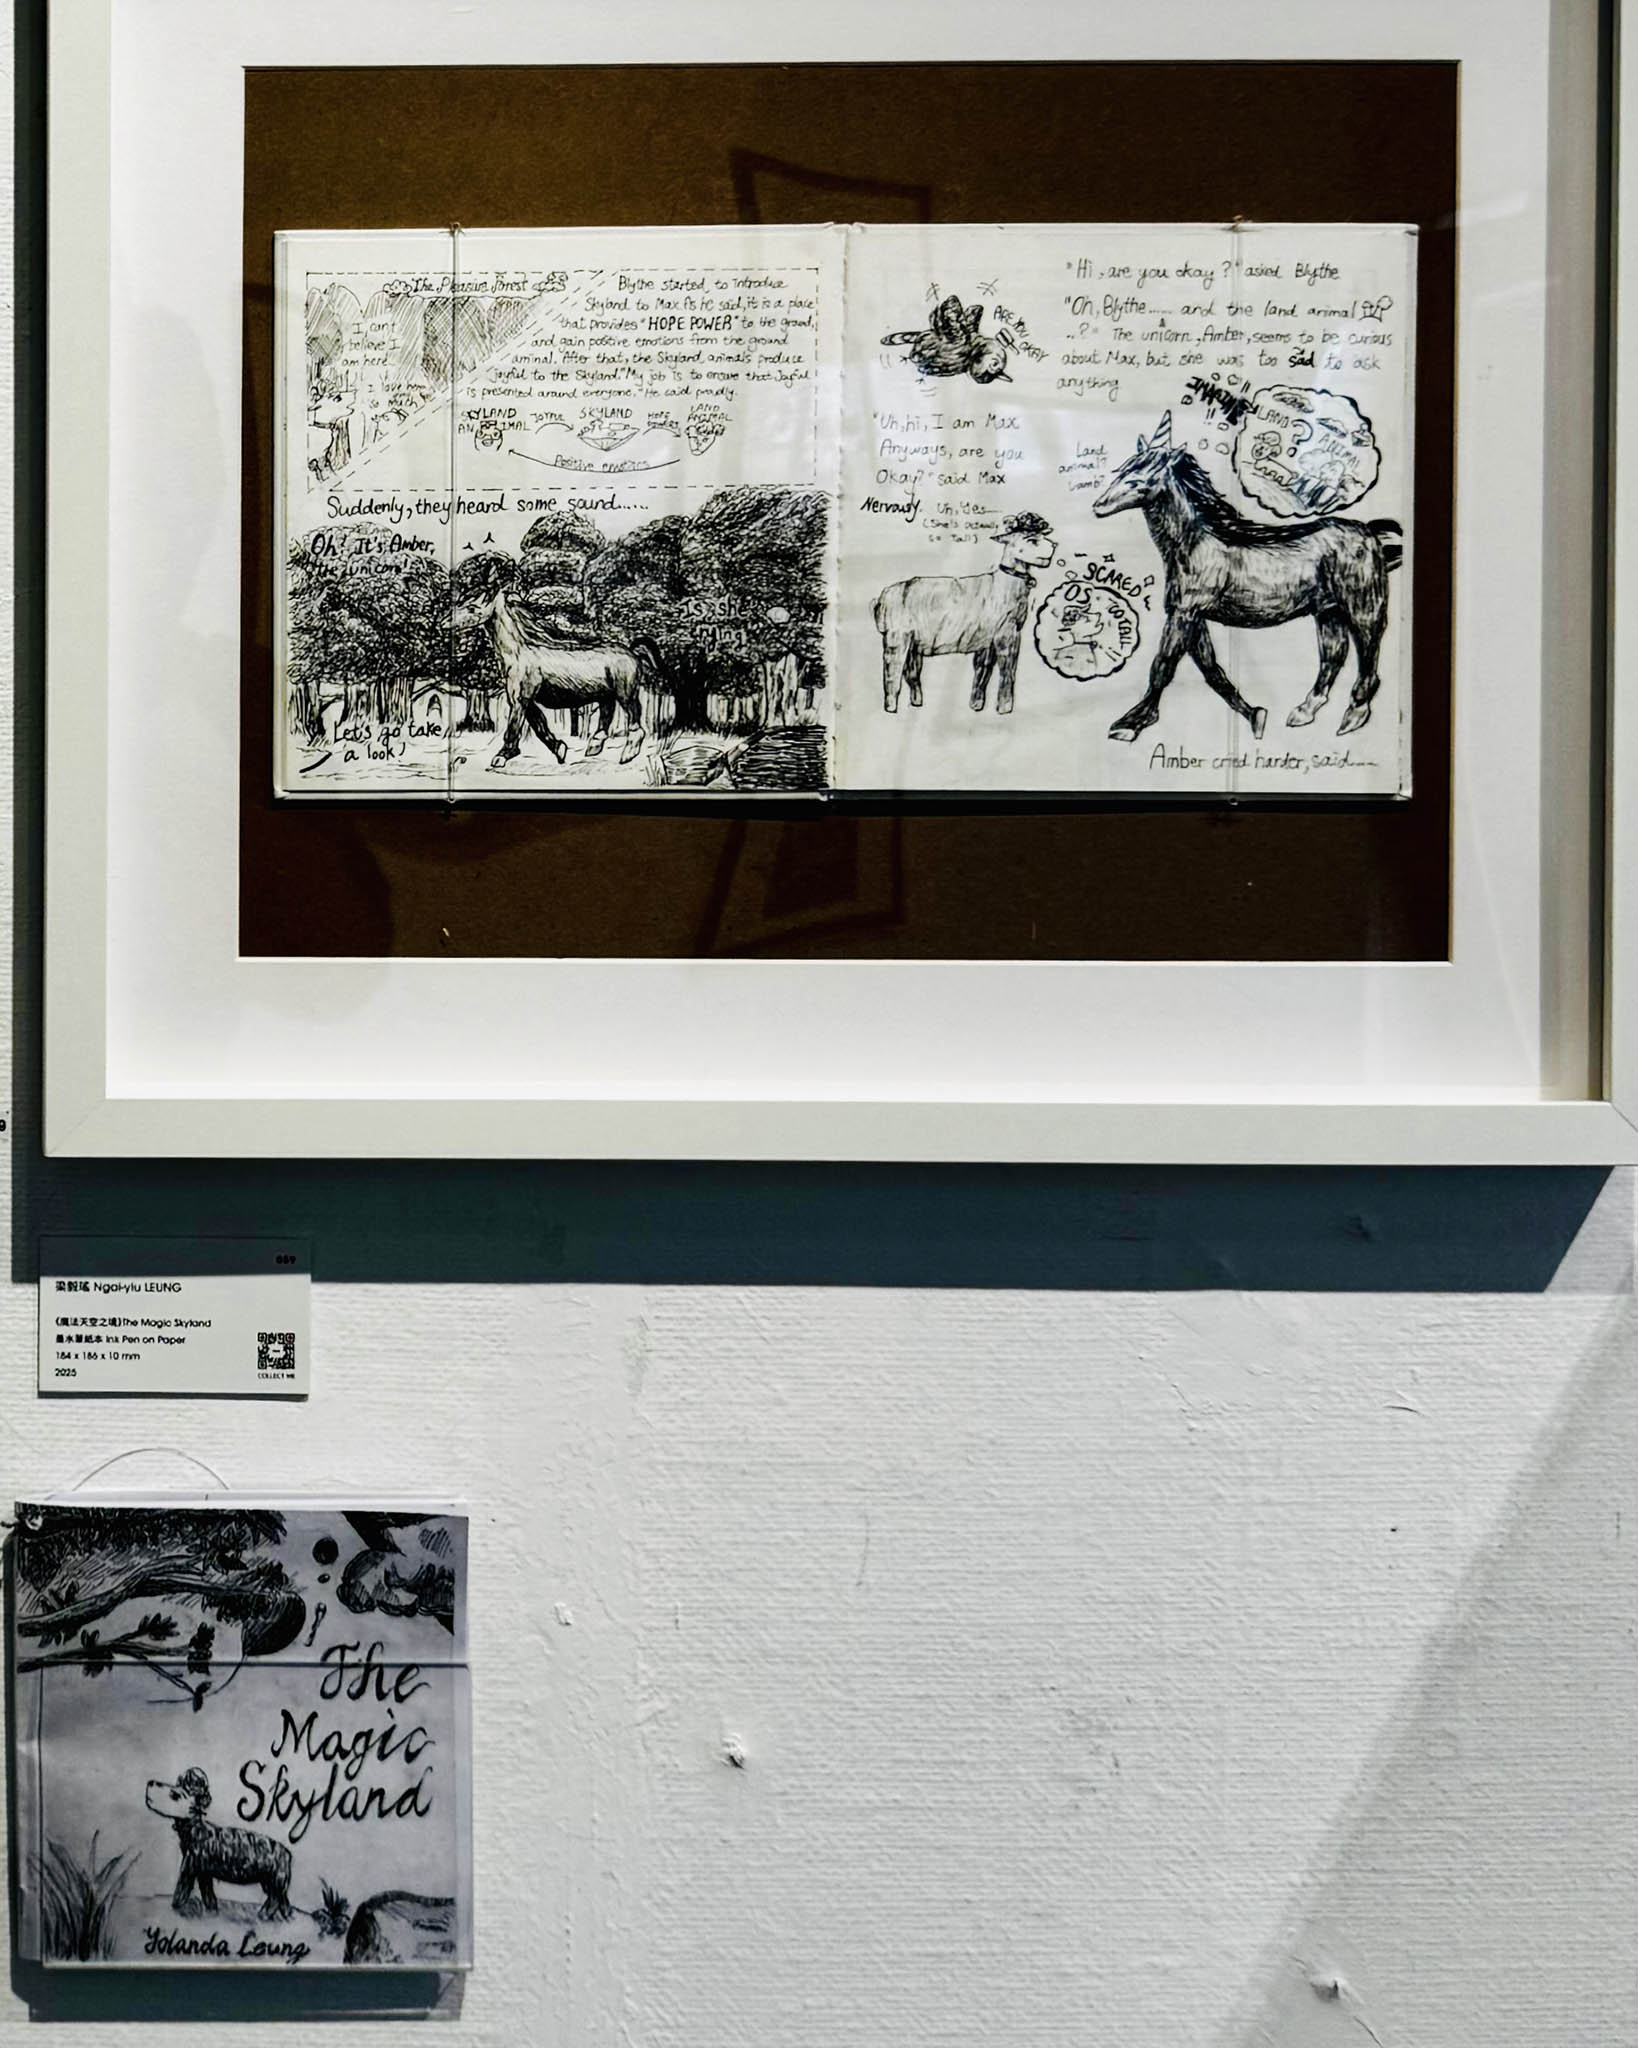 The Pleasure Forest
I can't
believe I
am here
I love here
so much
Blythe started, to introduce
Skyland to Max As he said, it is a place
that provides "HOPE POWER" to the ground,
and gain positive emotions from the ground
animal. After that, the Skyland, animals produce
joyful to the Skyland." My job is to ensure that Joyful
is presented around everyone." He said proudly.
SKYLAND
ANIMAL
JOYFUL
SKYLAND
HOPE
LAND
ANIMAL
Positive emotions
Suddenly, they heard some sound......
Oh! It's Amber,
the unicorn!
Is she
crying
Let's go take
a look!
"Hi, are you okay?" asked Blythe
"Oh, Blythe...... and the land animal
..?" The unicorn, Amber, seems to be curious
about Max, but she was too sad to ask
anything
ARE YOU
OKAY
"Uh, hi, I am Max
Anyways, are you
Okay?" said Max
Nervously. Uh, Yes....
so tall)
Land
animal?
Lamb?
IMAGINE
!!
LAND
?
ANIMAL
SCARED
SO TALL!!
Amber cried harder, said......
9
059
梁毅瑤 Ngai-yiu LEUNG
《魔法天空之境》The Magic Skyland
墨水筆紙本 Ink Pen on Paper
184 x 186 x 10 mm
2025
COLLECT ME
The
Magic
Skyland
Yolanda Leung